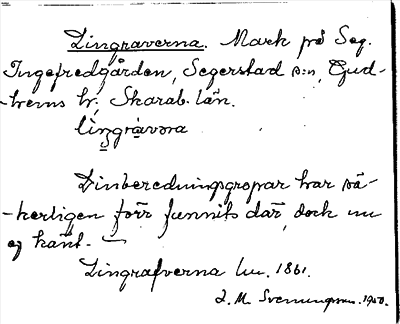 Lingraverna. Mark på Seg.
Ingefredgården, Segerstad s:n, Gud-
-hems hr; Skarab. län.
lingràvᴏra
Linberedningsgropar har sä-
-kerligen förr funnits där, dock nu
ej känt. —
Lingrafverna lm. 1861.
J. M. Svenungsson. 1950.